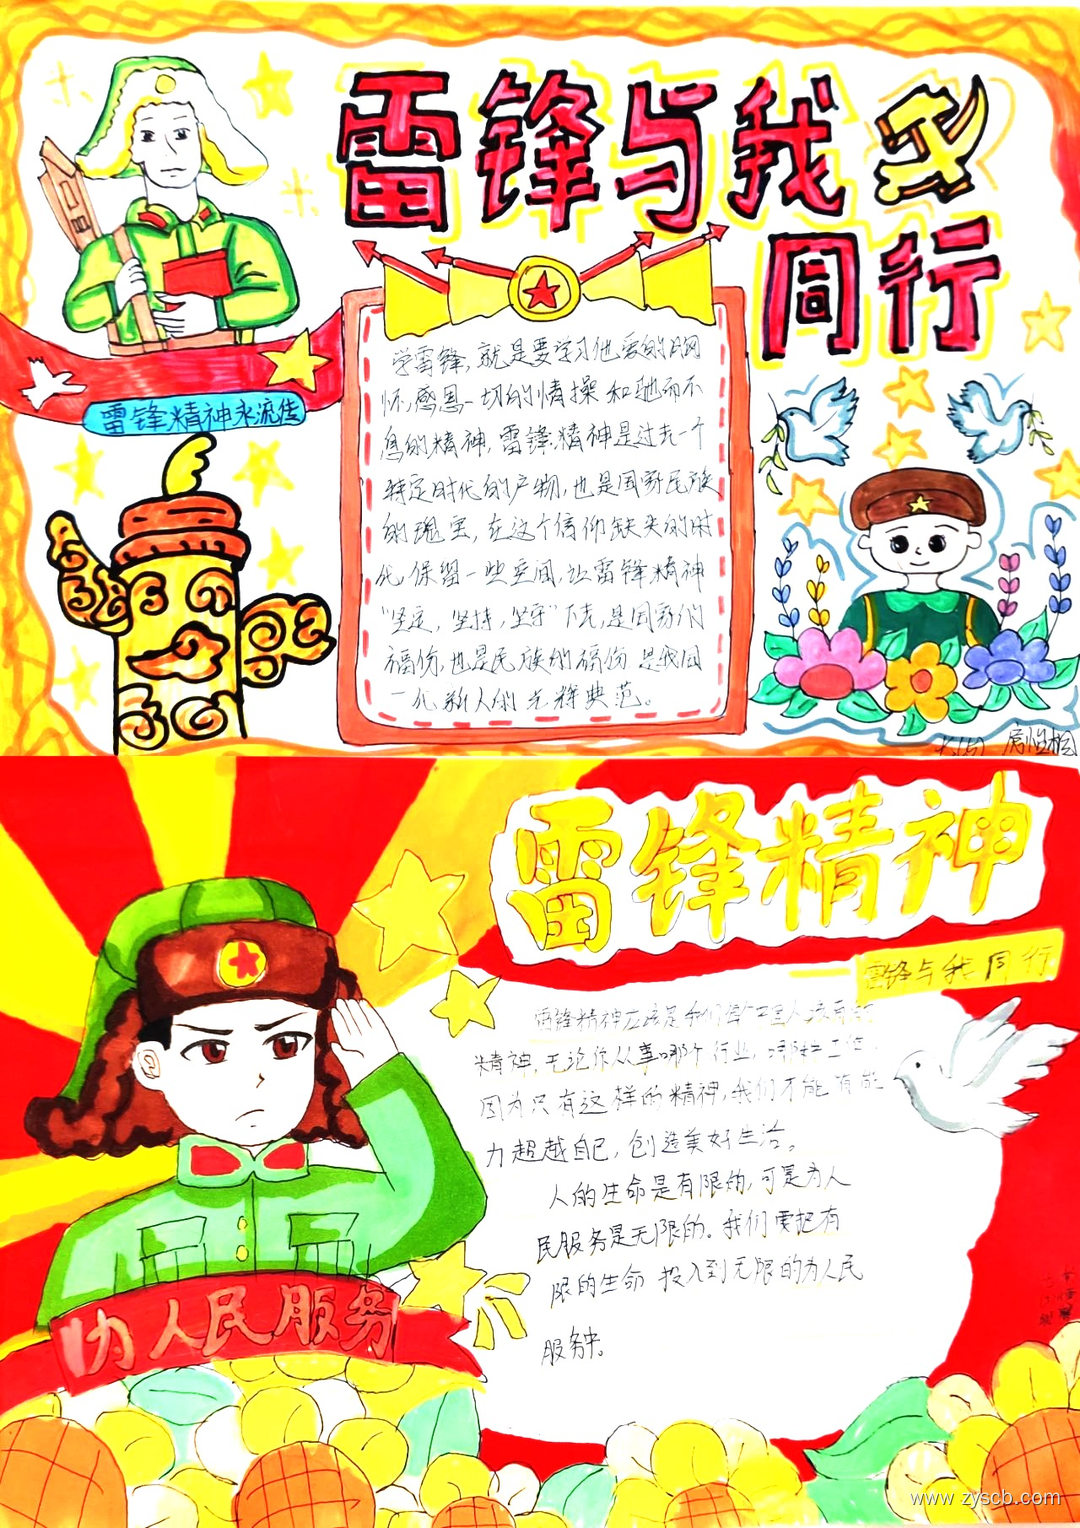 雷锋与我
同行
学雷锋,就是要学习他爱的胸
怀,感恩一切的情操和驰而不
息的精神,雷锋精神是过去一个
特定时代的产物,也是国家民族
的瑰宝,在这个信仰缺失的时
代保留一些空间,让雷锋精神
"坚定,坚持,坚守"下去,是国家们
福份,也是民族的福份是我国
一代新人的光辉典范。
雷锋精神永流传
雷锋精神
雷锋与我同行
雷锋精神应该是我们每个中国人该有的
精神,无论你从事哪个行业,哪种工作,
因为只有这样的精神,我们才能有能
力超越自己,创造美好生活。
人的生命是有限的,可是为人
民服务是无限的。我们要把有
限的生命投入到无限的为人民
服务中。
为人民服务
www.zyscb.com